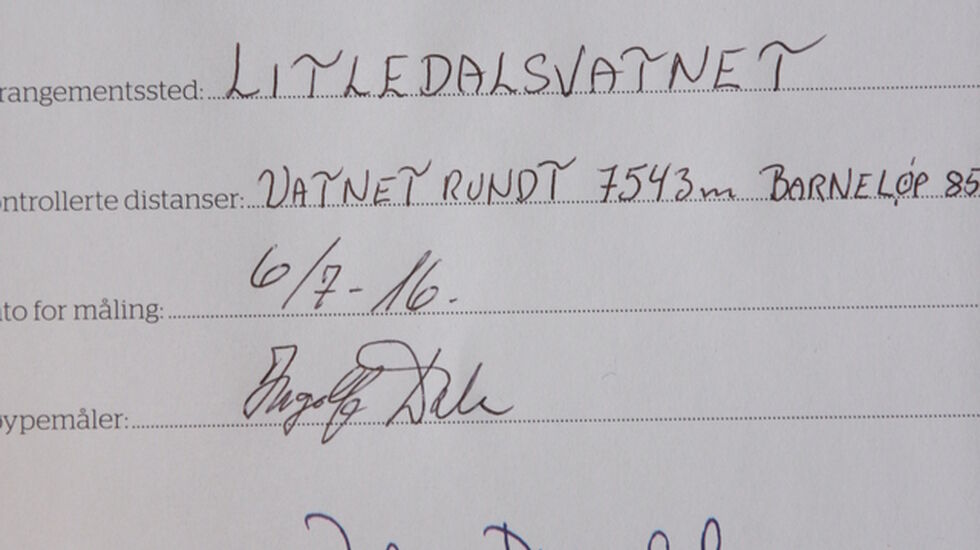 rrangementssted: LITLEDALSVATNET
ontrollerte distanser: VATNET RUNDT 7543m BARNELØP 85
to for måling: 6/7-16.
ypemåler: Ingolf Dale